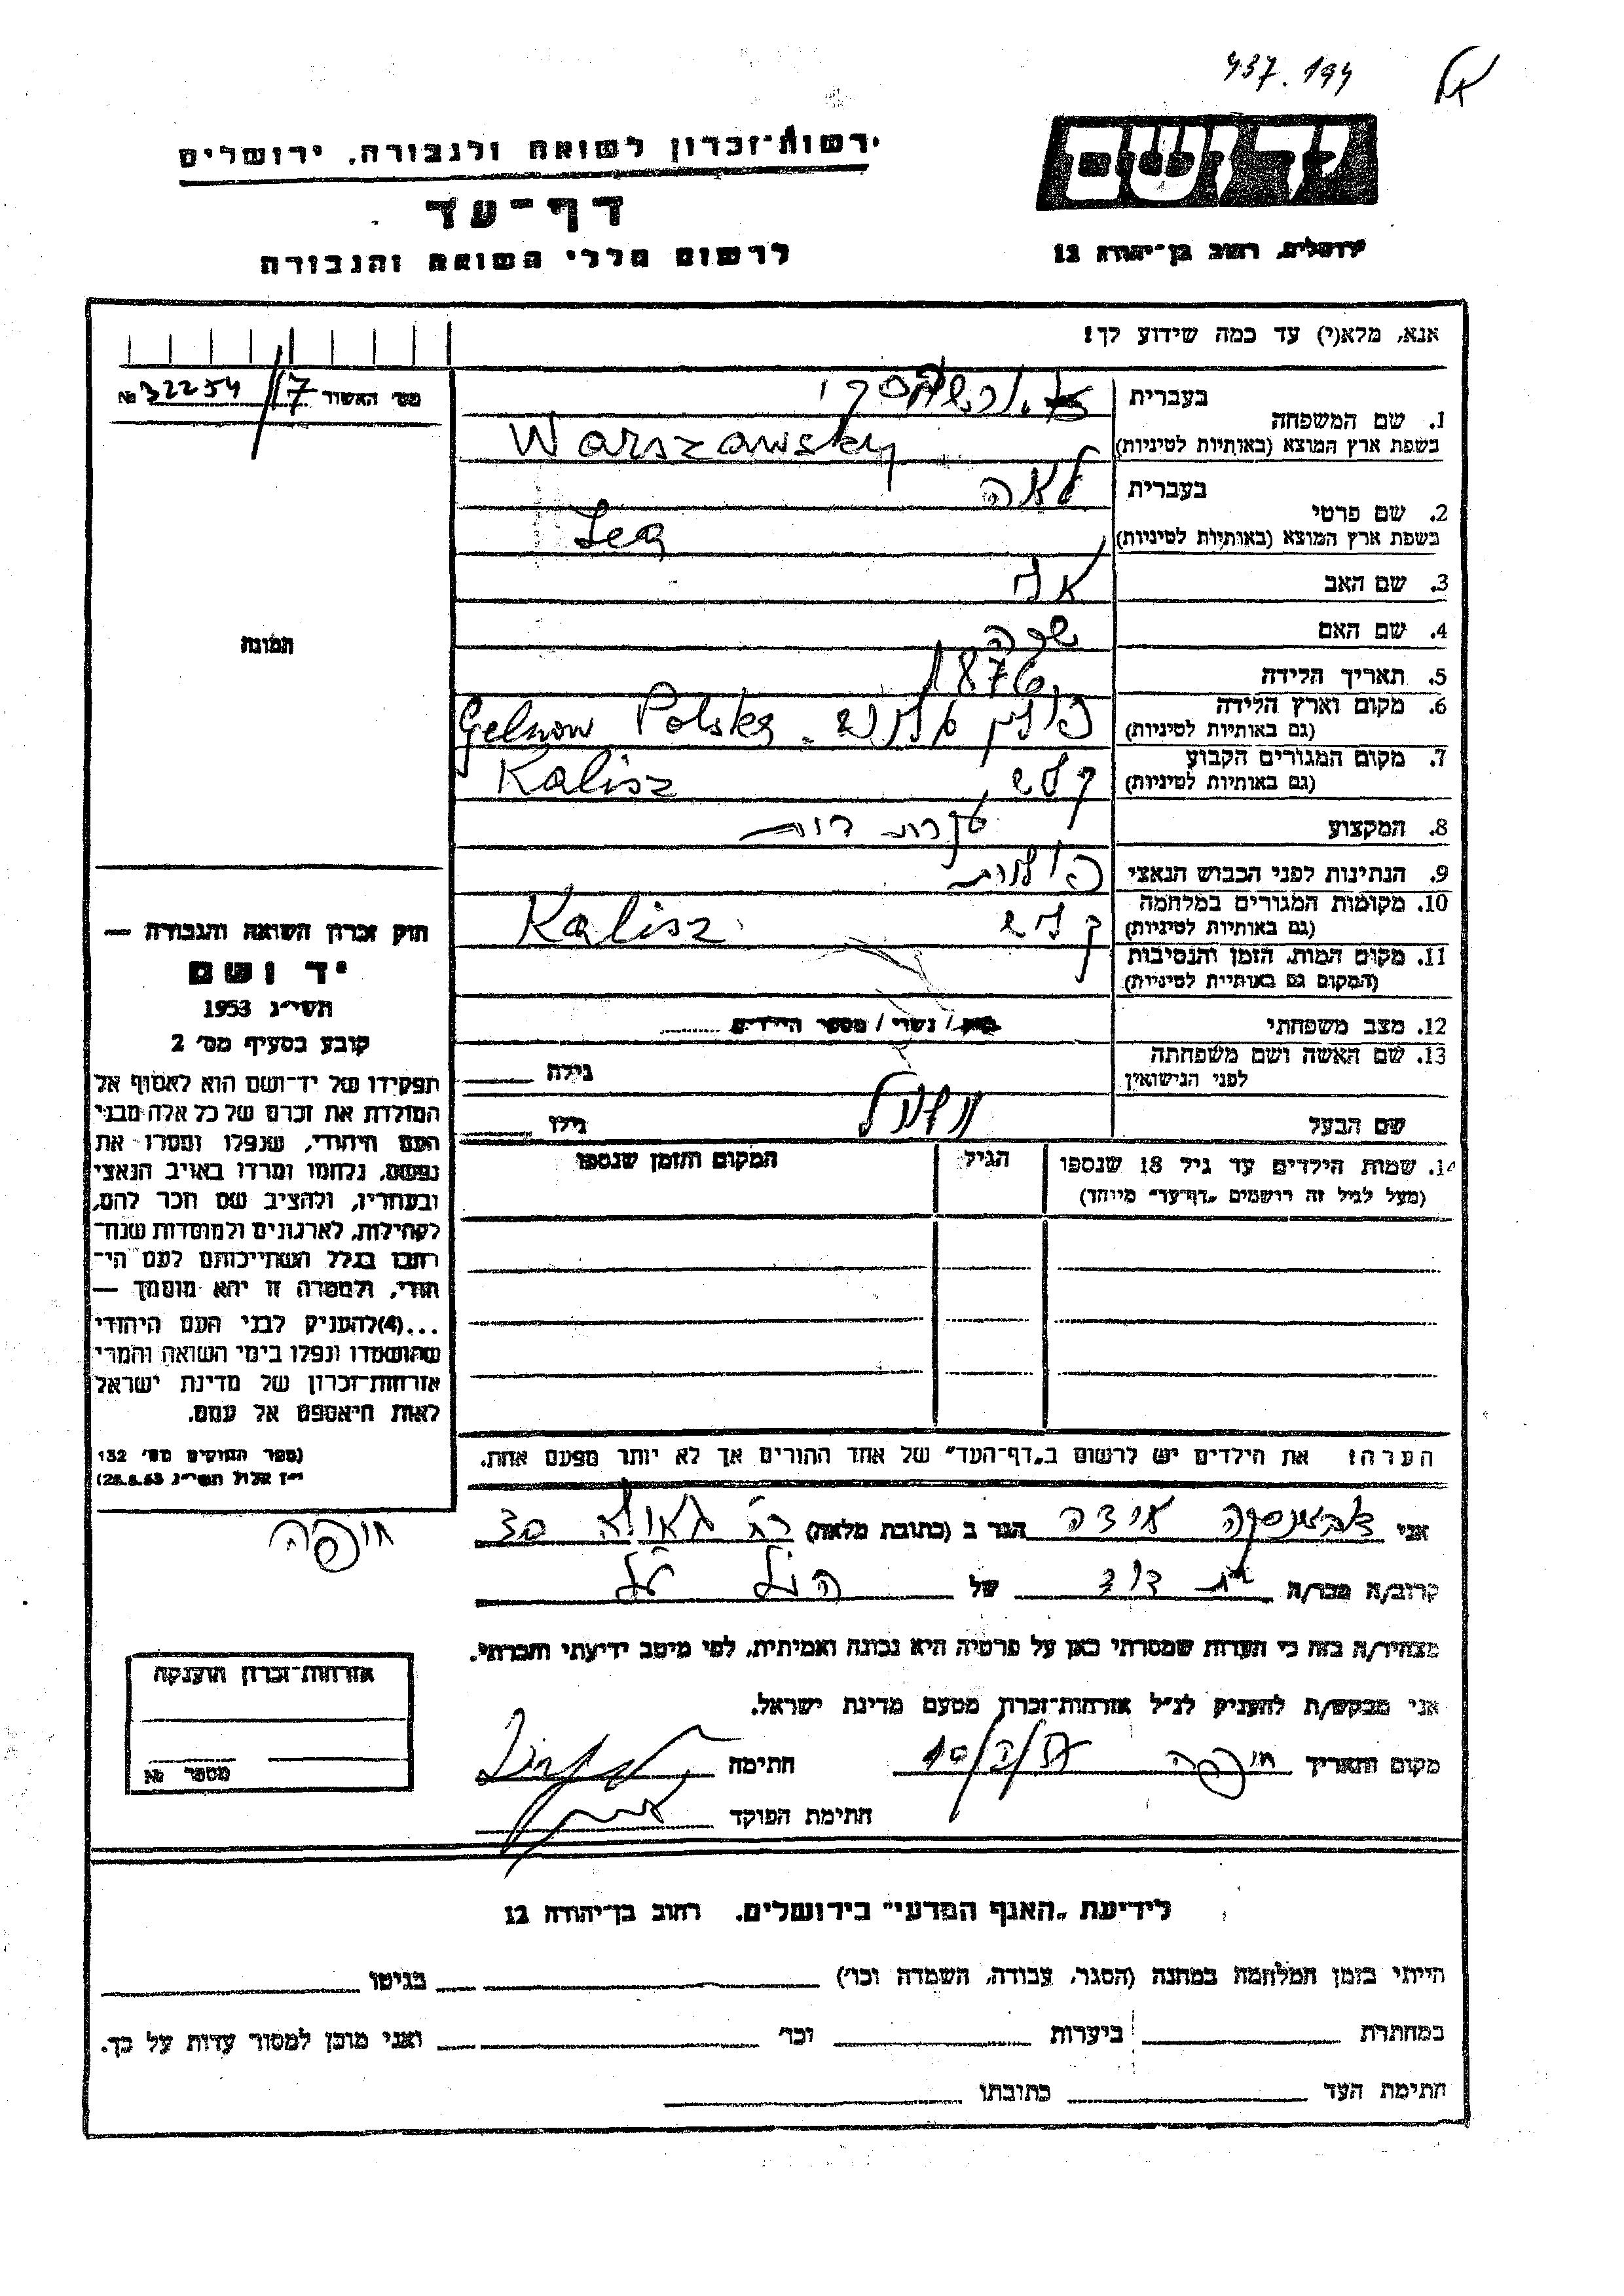 437.194
יד ושם
ירושלים, רחוב בן־יהודה 12
רשות־זכרון לשואה ולגבורה, ירושלים
דף־עד
לרשום חללי השואה והגבורה
אנא, מלא(י) עד כמה שידוע לך!
מס׳ האשור 17/ 32254 №
1. שם המשפחה
בעברית
בשפת ארץ המוצא (באותיות לטיניות) Warszawsky
2. שם פרטי
בעברית לאה
בשפת ארץ המוצא (באותיות לטיניות) Lea
3. שם האב
4. שם האם שרה
5. תאריך הלידה 1876
6. מקום וארץ הלידה פולין Polska
(גם באותיות לטיניות)
7. מקום המגורים הקבוע קליש Kalisz
(גם באותיות לטיניות)
8. המקצוע עקרת בית
9. הנתינות לפני הכבוש הנאצי פולנית
10. מקומות המגורים במלחמה קליש Kalisz
(גם באותיות לטיניות)
11. מקום המות, הזמן והנסיבות
(המקום גם באותיות לטיניות)
12. מצב משפחתי רווק / נשוי / מספר הילדים
13. שם האשה ושם משפחתה גילה
לפני הנישואין
שם הבעל גילו
14. שמות הילדים עד גיל 18 שנספו הגיל המקום והזמן שנספו
(מעל לגיל זה רושמים „דף־עד״ מיוחד)
תמונה
חוק זכרון השואה והגבורה —
יד ושם
תשי״ג 1953
קובע בסעיף מס׳ 2
תפקידו של יד־ושם הוא לאסוף אל
המולדת את זכרם של כל אלה מבני
העם היהודי, שנפלו ומסרו את
נפשם, נלחמו ומרדו באויב הנאצי
ובעוזריו, ולהציב שם וזכר להם,
לקהילות, לארגונים ולמוסדות שנח־
רבו בגלל השתייכותם לעם הי־
הודי, ולמטרה זו יהא מוסמך —
...(4) להעניק לבני העם היהודי
שהושמדו ונפלו בימי השואה והמרי
אזרחות־זכרון של מדינת ישראל
לאות היאספם אל עמם.
(ספר החוקים מס׳ 132
י״ז אלול תשי״ג 28.8.53)
הערה! את הילדים יש לרשום ב„דף־העד״ של אחד ההורים אך לא יותר מפעם אחת.
חיפה
אני הגר ב (כתובת מלאה) רח׳ גאולה
קרוב/ה מכר/ה של
מצהיר/ה בזה כי העדות שמסרתי כאן על פרטיה היא נכונה ואמיתית, לפי מיטב ידיעתי והכרתי.
אני מבקש/ת להעניק לנ״ל אזרחות־זכרון מטעם מדינת ישראל.
מקום ותאריך חיפה חתימה
חתימת הפוקד
אזרחות־זכרון הוענקה
מספר №
לידיעת „האגף המדעי״ בירושלים, רחוב בן־יהודה 12
הייתי בזמן המלחמה במחנה (הסגר, עבודה, השמדה וכו׳) בגיטו
במחתרת ביערות וכו׳ ואני מוכן למסור עדות על כך.
חתימת העד כתובתו